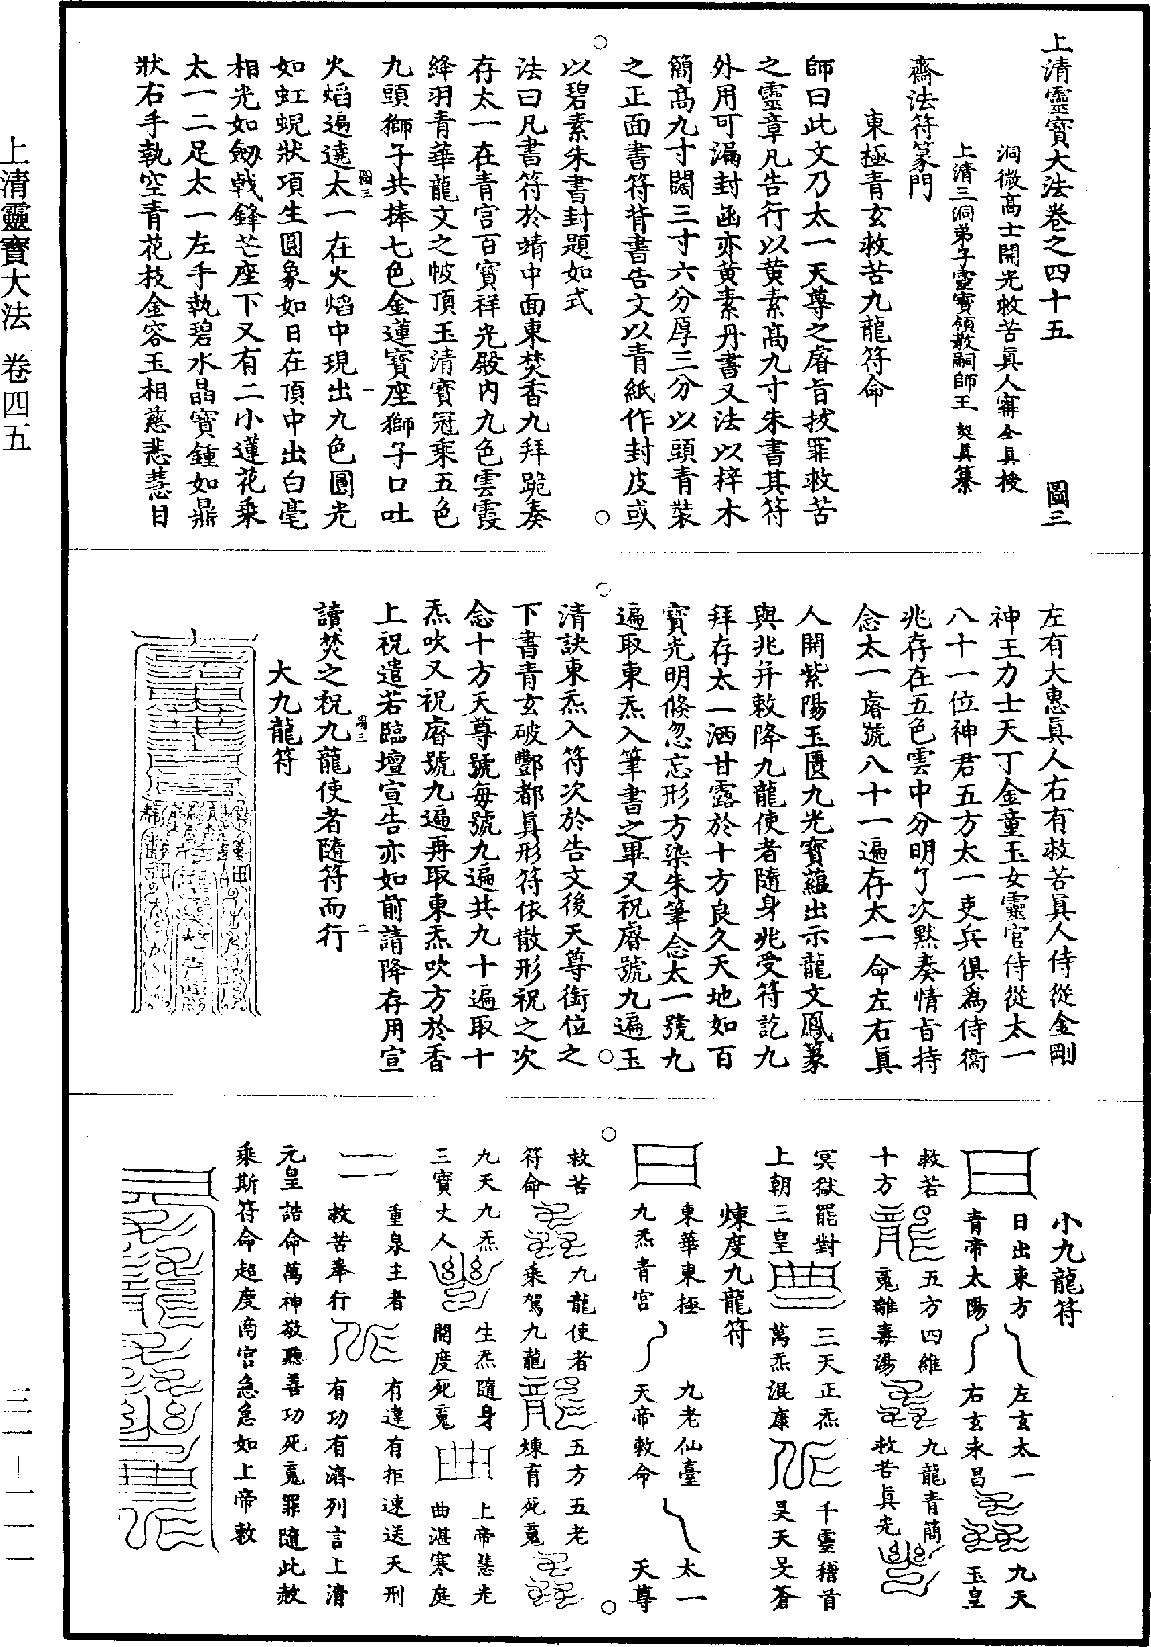 上清靈寶大法卷之四十五　圖三
洞微高士開光救苦真人甯全真授
上清三洞弟子靈寶領教嗣師王契真纂
齋法符篆門
東極青玄救苦九龍符命
師曰此文乃太一天尊之睿旨拔罪救苦
之靈章凡告行以黃素高九寸朱書其符
外用可漏封函亦黃素丹書又法以梓木
簡高九寸闊三寸六分厚三分以頭青裝
之正面書符背書告文以青紙作封皮或
以碧素朱書封題如式
法曰凡書符於蜻中面東焚香九拜跪奏
存太一在青宮百寶祥光殿內九色雲霞
絳羽青華龍文之帔頂玉清寶冠乘五色
九頭獅子共捧七色金蓮寶座獅子口吐
火焰遍遶太一在火焰中現出九色圓光
如虹蜺狀項生圓象如日在頂中出白毫
相光如劒戟鋒芒座下又有二小蓮花乘
太一二足太一左手執碧水晶寶鍾如鼎
狀右手執空青花枝金容玉相慈悲慧目
左有大惠真人右有救苦真人侍從金剛
神王力士天丁金童玉女靈官侍從太一
八十一位神君五方太一吏兵俱為侍衞
兆存在五色雲中分明了次黙奏情旨持
念太一睿號八十一遍存太一命左右真
人開紫陽玉匱九光寶蘊出示龍文鳳篆
與兆并敕降九龍使者隨身兆受符訖九
拜存太一洒甘露於十方良久天地如百
寶光明倏忽忘形方染朱筆念太一號九
遍取東炁入筆書之畢又祝睿號九遍玉
清訣東炁入符次於告文後天尊銜位之
下書青玄破酆都真形符依散形祝之次
念十方天尊號每號九遍共九十遍取十
炁吹又祝睿號九遍再取東炁吹方於香
上祝遣若臨壇宣告亦如前請降存用宣
讀焚之祝九龍使者隨符而行
大九龍符
小九龍符
日出東方　左玄太一　九天
青帝太陽　右玄永昌　玉皇
救苦　五方四維　九龍青簡
十方　䰟離毒湯　救苦真光
冥獄罷對　三天正炁　千靈稽首
上朝三皇　萬炁混康　昊天旻蒼
煉度九龍符
東華東極　九老仙臺　太一
九炁青宮　天帝敕命　天尊
救苦　九龍使者　五方五老
符命　乘駕九龍　煉育死䰟
九天九炁　生炁隨身　上帝慧光
三寶丈人　開度死䰟　曲湛寒庭
重泉主者　有違有拒速送天刑
救苦奉行　有功有濟列言上清
元皇誥命萬神敬聽善功死䰟罪隨此赦
乘斯符命超度南宮急急如上帝敕
上清靈寶大法　卷四五
三一—二一一